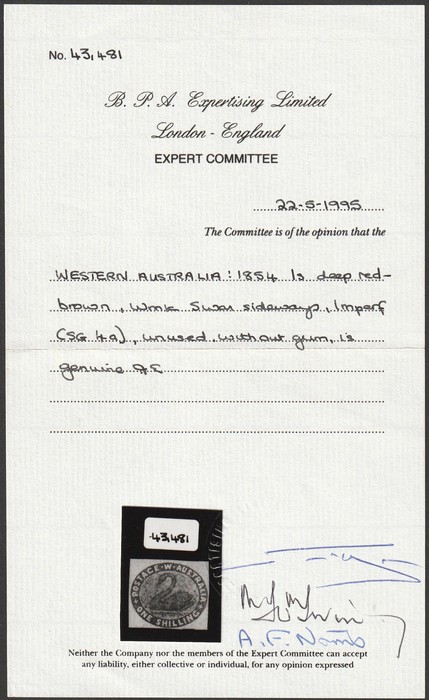 No. 43,481
B. P. A. Expertising Limited
London - England
EXPERT COMMITTEE
22-5-1995
The Committee is of the opinion that the
WESTERN AUSTRALIA: 1854 1s deep red-
brown, Wmk Swan sideways, Imperf
(SG 4a), unused without gum, is
genuine.
43,481
POSTAGE·W·AUSTRALIA
ONE SHILLING
A. F. Norris
Neither the Company nor the members of the Expert Committee can accept
any liability, either collective or individual, for any opinion expressed